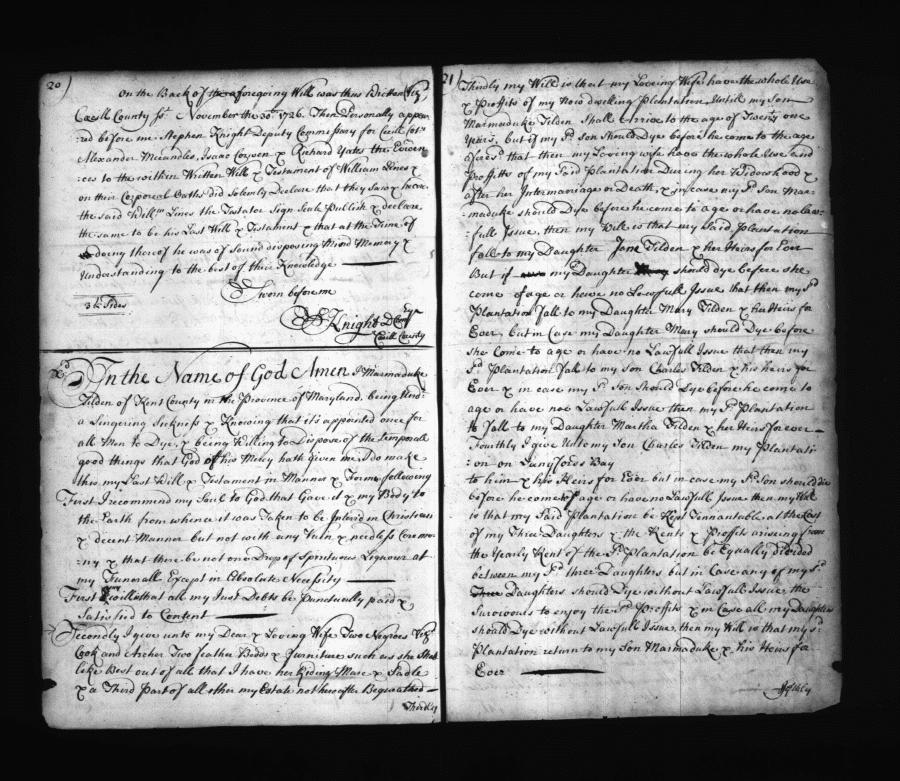 20)
on the Back of the aforegoing Will was thus Written Viz.
Cecill County ss. November the 30th 1726. Then Personally appea-
red before me Stephen Knight Deputy Commissary for Cecill Coty
Alexander Isaac & Richard Yates the Eviden-
ces to the within Written Will & Testament of William Lines &
on their Corporal Oaths Did Solemly Declare that they Saw & hear
the said Willm Lines the Testator Sign Seale Publish & declare
the same to be his Last Will & Testament & that at the Time of
doing thereof he was of Sound disposing Mind Memory &
Understanding to the best of their Knowledge
Sworn before me
3 Sides
S Knight D Comry
Cecill County
In the Name of God Amen I Marmaduke
Tilden of Kent County in the Province of Maryland being Und:
a Lingering Sickness & Knowing that it's appointed once for
all Men to Dye, & being Willing to Dispose of the temporall
good things that God of his Mercy hath given me, I do make
this my Last Will & Testament in Manner & Forme following
First I recommend my Soul to God that Gave it & my Body to
the Earth from whence it was Taken to be Interd in Christian
& decent Manner but not with any Vain & needless Ceremo:
:ny & that there be not one Drop of Spirituous Liquour at
my Funerall Except in Absolute Necessity
First I will that all my Just Debts be Punctually paid &
Satisfied to Content
Secondly I give unto my Dear & Loving Wife Two Negroes Viz
Cook and Archer Two feather Bedds & furniture such as she Shall
like Best out of all that I have her Riding Mare & Sadle
& a Third Part of all other my Estate not hereafter Bequeathed
Thirdly
21)
Thirdly my Will is that my Loveing Wife have the whole Use
& Proffits of my Now dwelling Plantation Untill my Son
Marmaduke Tilden Shall Arrive to the age of Twenty one
Years, but if my Sd Son should Dye before he come to the age
aforesd that then my Loving wife have the whole Use and
Proffitts of my Said Plantation During her Widowhood &
after her Intermarriage or Death, & in case my Sd Son Mar-
:maduke should Dye before he come to age or have no law-
:full Issue, then my Will is that my Said Plantation
fall to my Daughter Jane Tilden & her Heirs for Ever
But if my Daughter should dye before she
come of age or have no Lawfull Issue that then my Sd
Plantation fall to my Daughter Mary Tilden & her Heirs for
Ever but in Case my Daughter Mary should Dye before
she Come to age or have no Lawfull Issue that then my
Sd Plantation fall to my Son Charles Tilden & his heirs for
Ever & in case my Sd Son should Dye before he come to
age or have not Lawfull Issue then my Sd Plantation
to fall to my Daughter Martha Tilden & her Heirs for ever
Fourthly I give Unto my Son Charles Tilden my Plantati:
:on on Langfords Bay
to him & his Heirs for Ever but in case my Sd Son should die
before he come of age or have no Lawfull Issue then my Will
is that my Said Plantation be Kept Tennantable at the Cost
of my Three Daughters & the Rents & Proffits arising from
the Yearly Rent of the Sd Plantation be Equally Divided
between my Sd three Daughters but in Case any of my Sd
Three Daughters should Dye without Lawfull Issue the
Survivours to enjoy the Sd Proffits & in Case all my Daughters
should Dye without Lawfull Issue, then my Will is that my Sd
Plantation return to my Son Marmaduke & his Heirs for
Ever
Fifthly